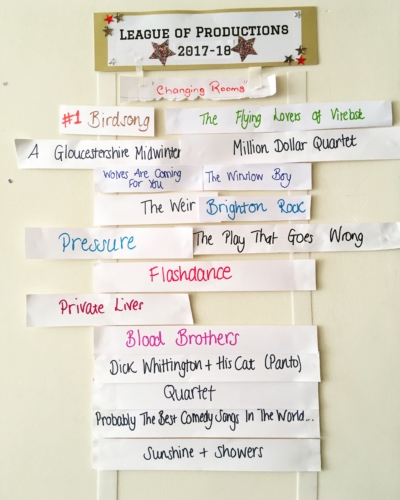 LEAGUE OF PRODUCTIONS
2017-18
"Changing Rooms"
#1 Birdsong
The Flying Lovers of Vitebsk
A Gloucestershire Midwinter
Million Dollar Quartet
Wolves Are Coming
For You
The Winslow Boy
The Weir
Brighton Rock
Pressure
The Play That Goes Wrong
Flashdance
Private Lives
Blood Brothers
Dick Whittington + His Cat (Panto)
Quartet
Probably The Best Comedy Songs In The World...
Sunshine + Showers